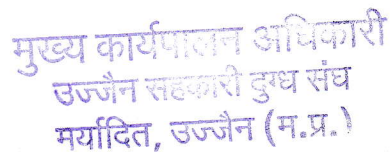 मुख्य कार्यपालन अधिकारी
उज्जैन सहकारी दुग्ध संघ
मर्यादित, उज्जैन (म.प्र.)